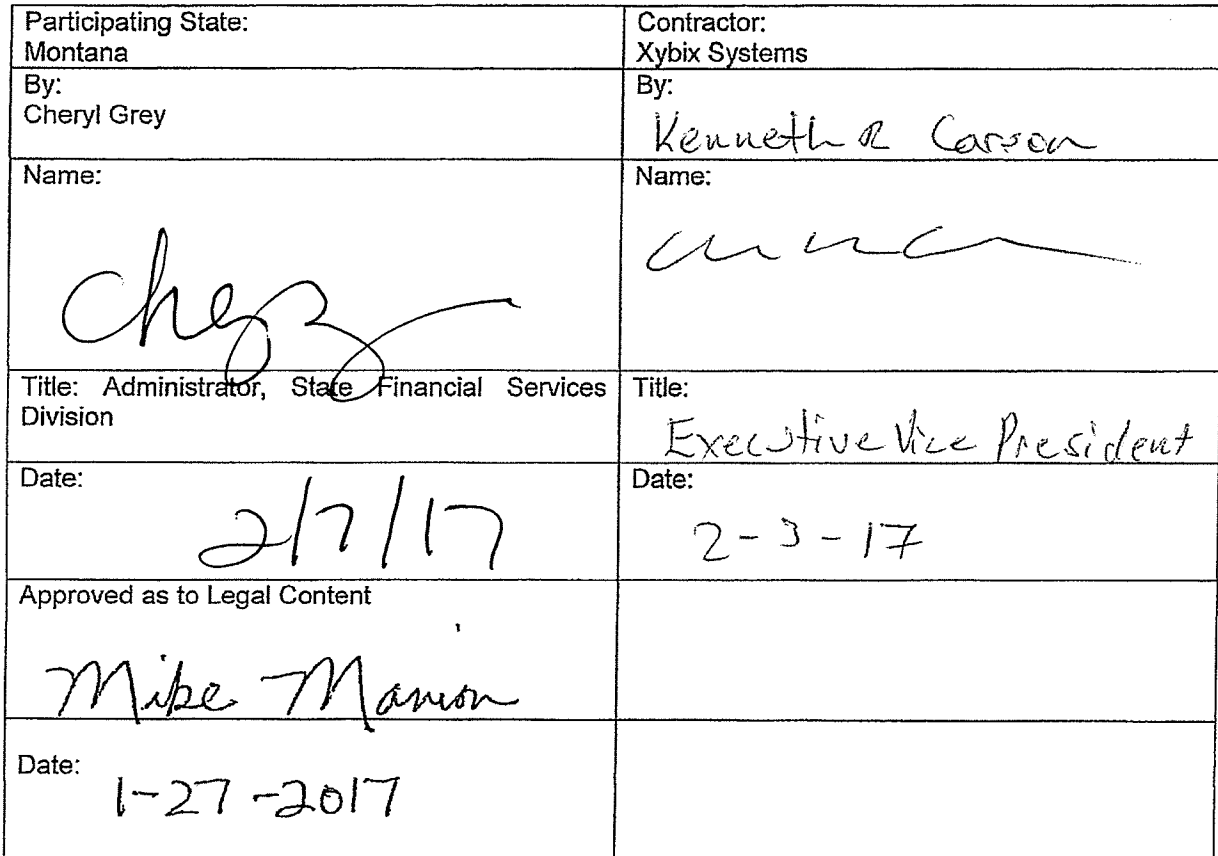 Participating State:
Montana
Contractor:
Xybix Systems
By:
Cheryl Grey
By:
Kenneth R Carson
Name:
Name:
Title: Administrator, State Financial Services
Division
Title:
Executive Vice President
Date:
2/7/17
Date:
2-3-17
Approved as to Legal Content
Mike Manion
Date:
1-27-2017